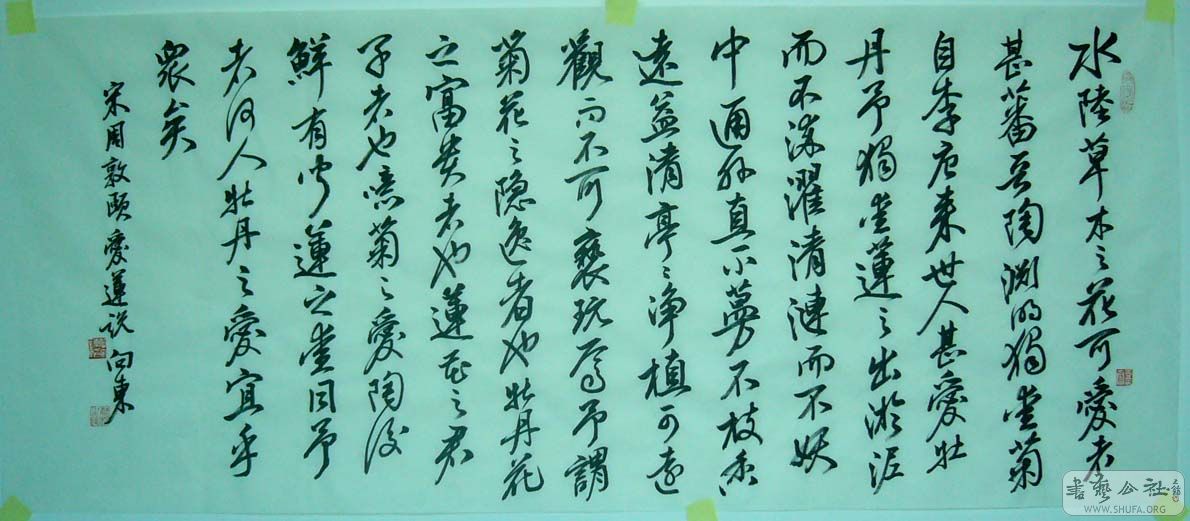 水陸草木之花可愛者
甚蕃晉陶淵明獨愛菊
自李唐來世人甚愛牡
丹予獨愛蓮之出淤泥
而不染濯清漣而不妖
中通外直不蔓不枝香
遠益清亭〻淨植可遠
觀而不可褻玩焉予謂
菊花之隱逸者也牡丹花
之富貴者也蓮花之君
子者也噫菊之愛陶後
鮮有聞蓮之愛同予
者何人牡丹之愛宜乎
眾矣
宋周敦頤愛蓮説 向東
書藝公社
WWW.SHUFA.ORG